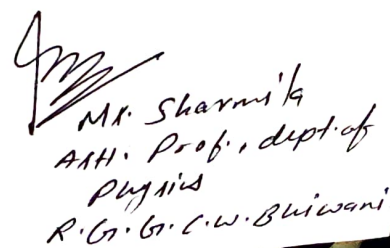 Ms. Sharmila
Asst. Prof., dept. of
Physics
R.G.G.C.W. Bhiwani